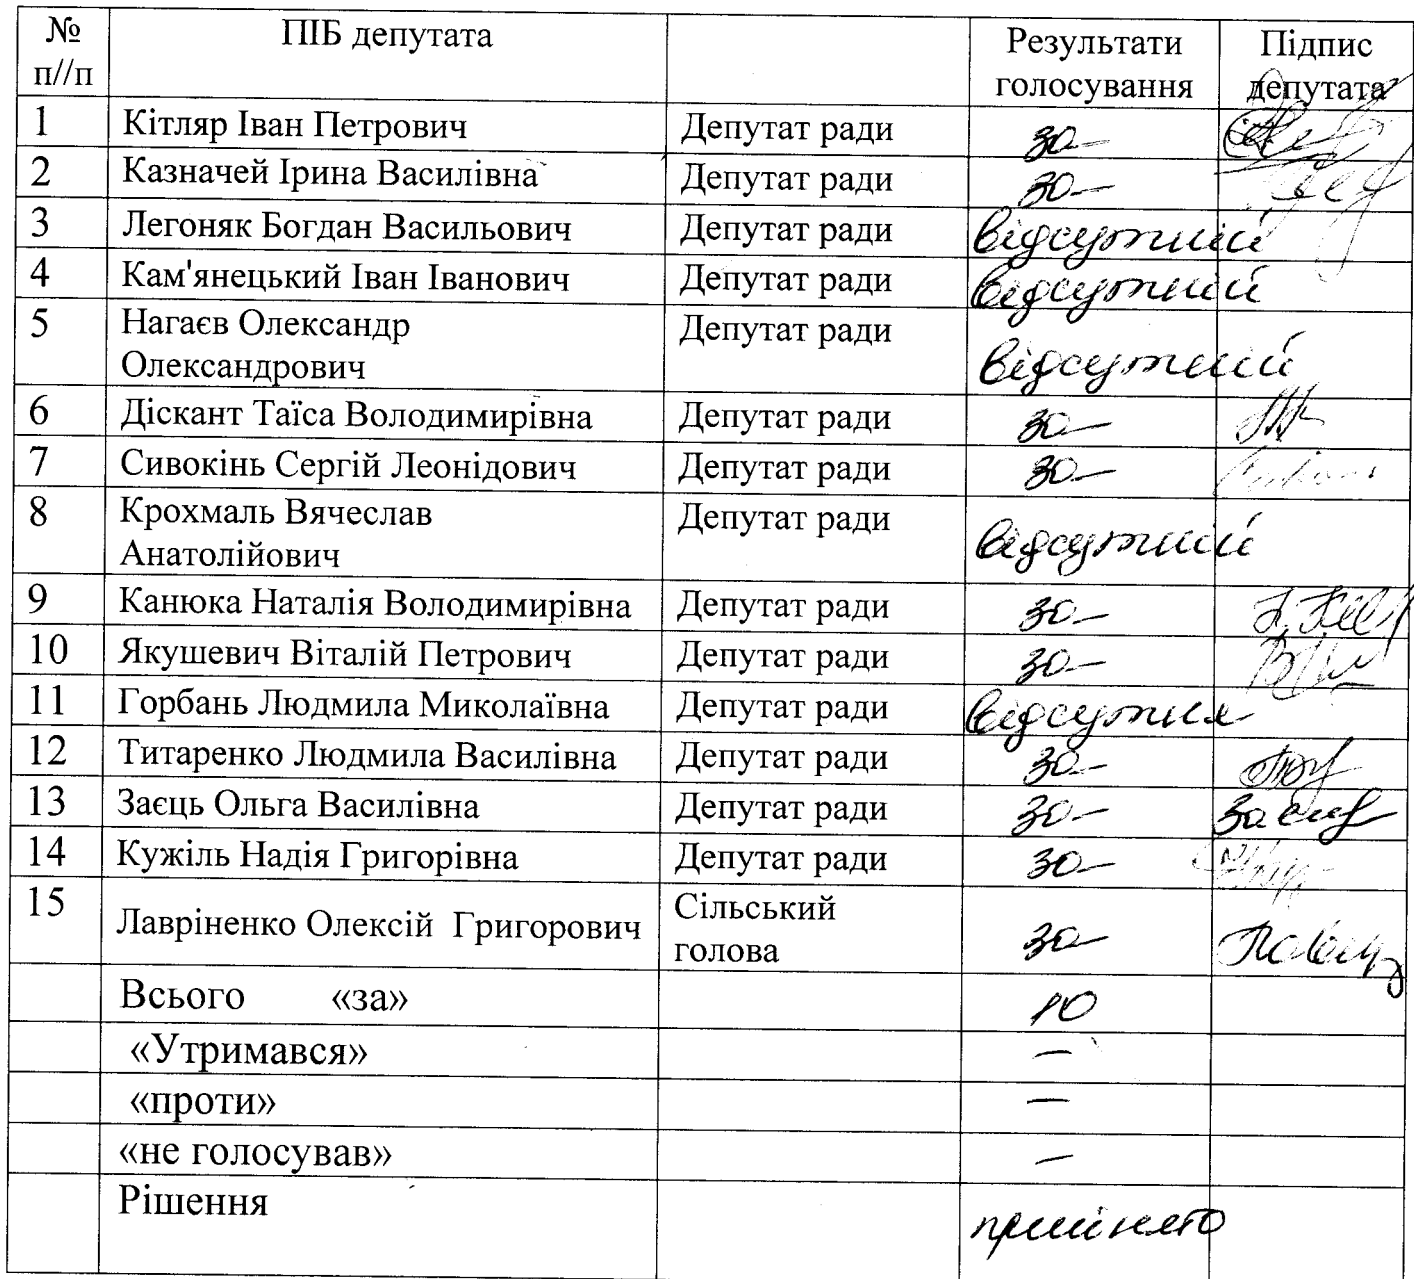 № ПІБ депутата Результати Підпис
п//п голосування депутата
1 Кітляр Іван Петрович Депутат ради за
2 Казначей Ірина Василівна Депутат ради за
3 Легоняк Богдан Васильович Депутат ради відсутній
4 Кам'янецький Іван Іванович Депутат ради відсутній
5 Нагаєв Олександр Депутат ради
Олександрович відсутній
6 Діскант Таїса Володимирівна Депутат ради за
7 Сивокінь Сергій Леонідович Депутат ради за
8 Крохмаль Вячеслав Депутат ради
Анатолійович відсутній
9 Канюка Наталія Володимирівна Депутат ради за
10 Якушевич Віталій Петрович Депутат ради за
11 Горбань Людмила Миколаївна Депутат ради відсутня
12 Титаренко Людмила Василівна Депутат ради за
13 Заєць Ольга Василівна Депутат ради за
14 Кужіль Надія Григорівна Депутат ради за
15 Лавріненко Олексій Григорович Сільський
голова за
Всього «за» 10
«Утримався» —
«проти» —
«не голосував» —
Рішення прийнято